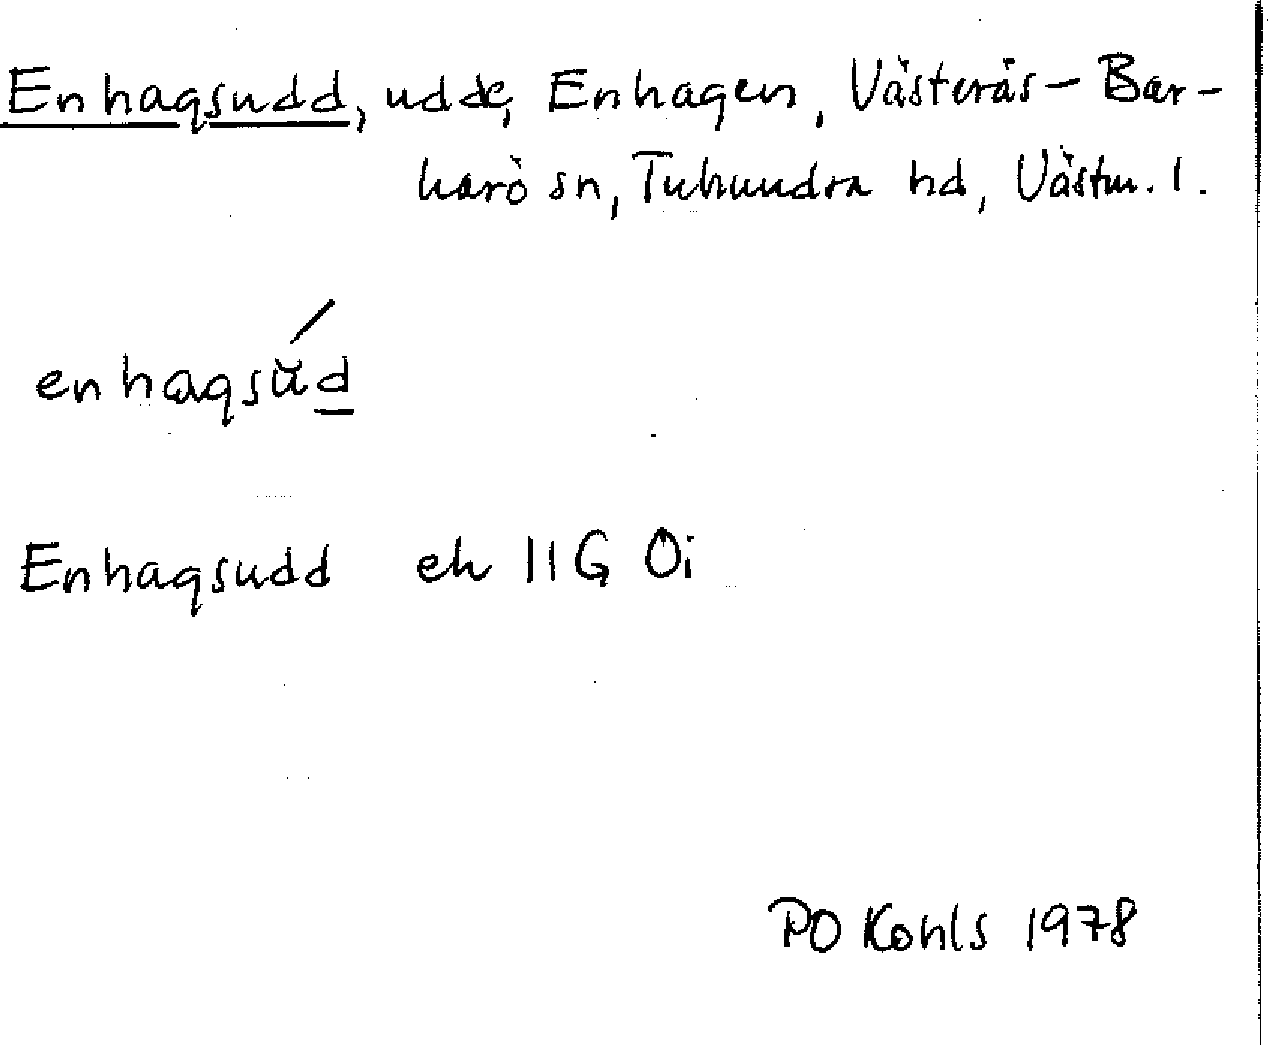 Enhagsudd, udde, Enhagen, Västerås-Bar-
karö sn, Tuhundra hd, Västm. l.
enhagsŭ́d
Enhagsudd ek 11G 0i
PO Kohls 1978